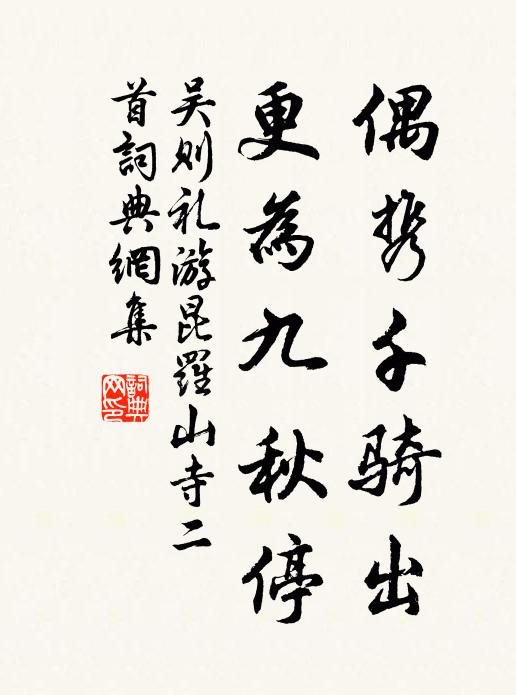 偶携千骑出
更為九秋停
吴则礼游昆羅山寺二
首詞典網集
詞典网印